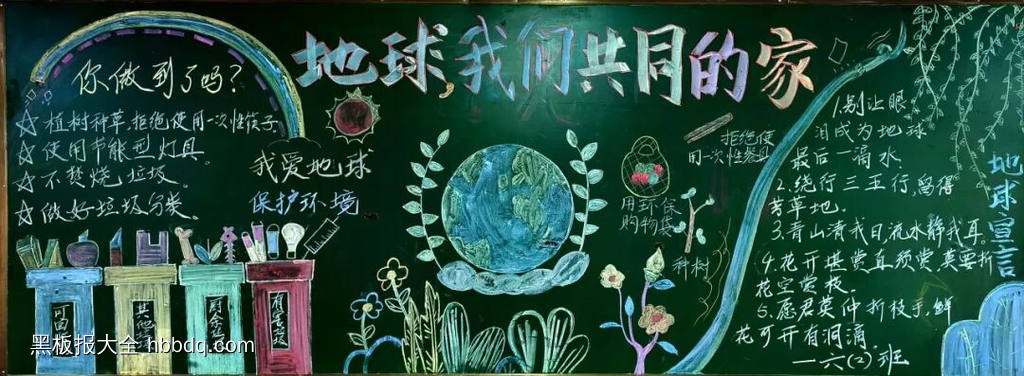 地球,我们共同的家
你做到了吗?
☆植树种草,拒绝使用一次性筷子
☆使用节能型灯具。
☆不焚烧垃圾。
☆做好垃圾分类。
我爱地球
保护环境
可回
其他
厨余垃
有害垃圾
拒绝使
用一次性餐具
用环保
购物袋
种树
1.别让眼
泪成为地球
最后一滴水
2.绕行三五行,留得
芳草地.
3.青山清我目,流水静我耳。
4.花开堪赏直须赏,莫要折
花空赏枝。
5.愿君莫伸折枝手,鲜
花可开有润滴.
一六(2)班
地球宣言
黑板报大全 hbbdq.com